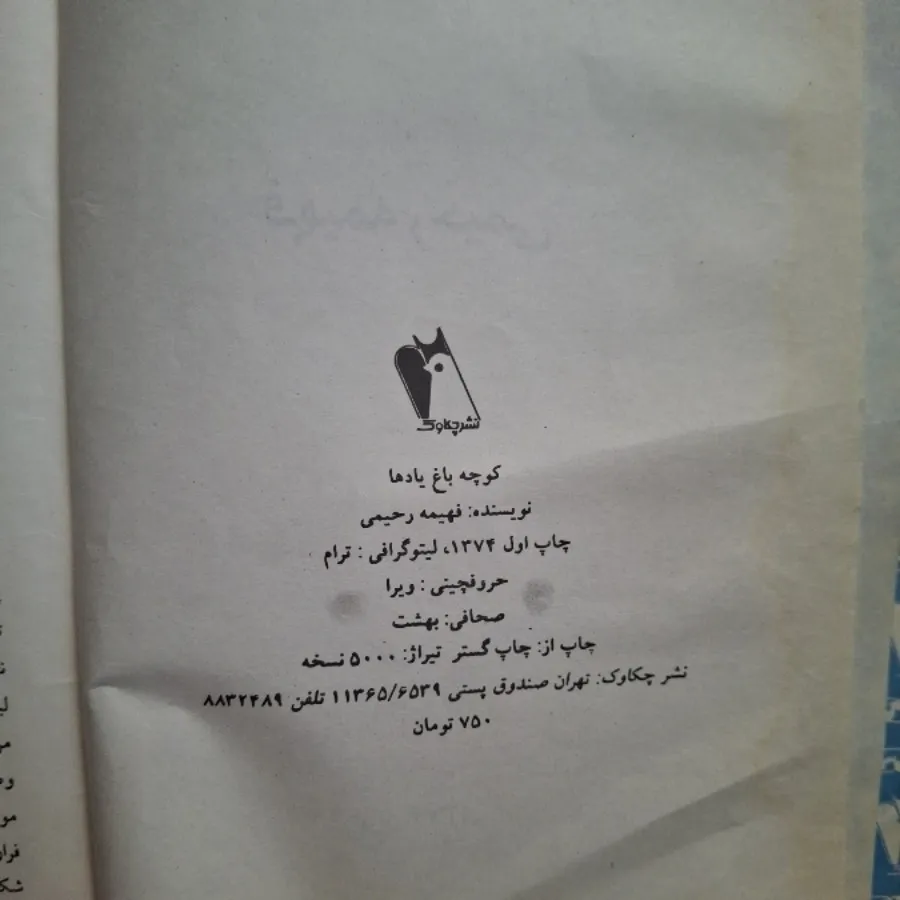 نشر چکاوک
کوچه باغ یادها
نویسنده: فهیمه رحیمی
چاپ اول ۱۳۷۴، لیتوگرافی: ترام
حروفچینی: ویرا
صحافی: بهشت
چاپ از: چاپ گستر تیراژ: ۵۰۰۰ نسخه
نشر چکاوک: تهران صندوق پستی ۱۱۳۶۵/۶۵۳۹ تلفن ۸۸۳۲۴۸۹
۷۵۰ تومان